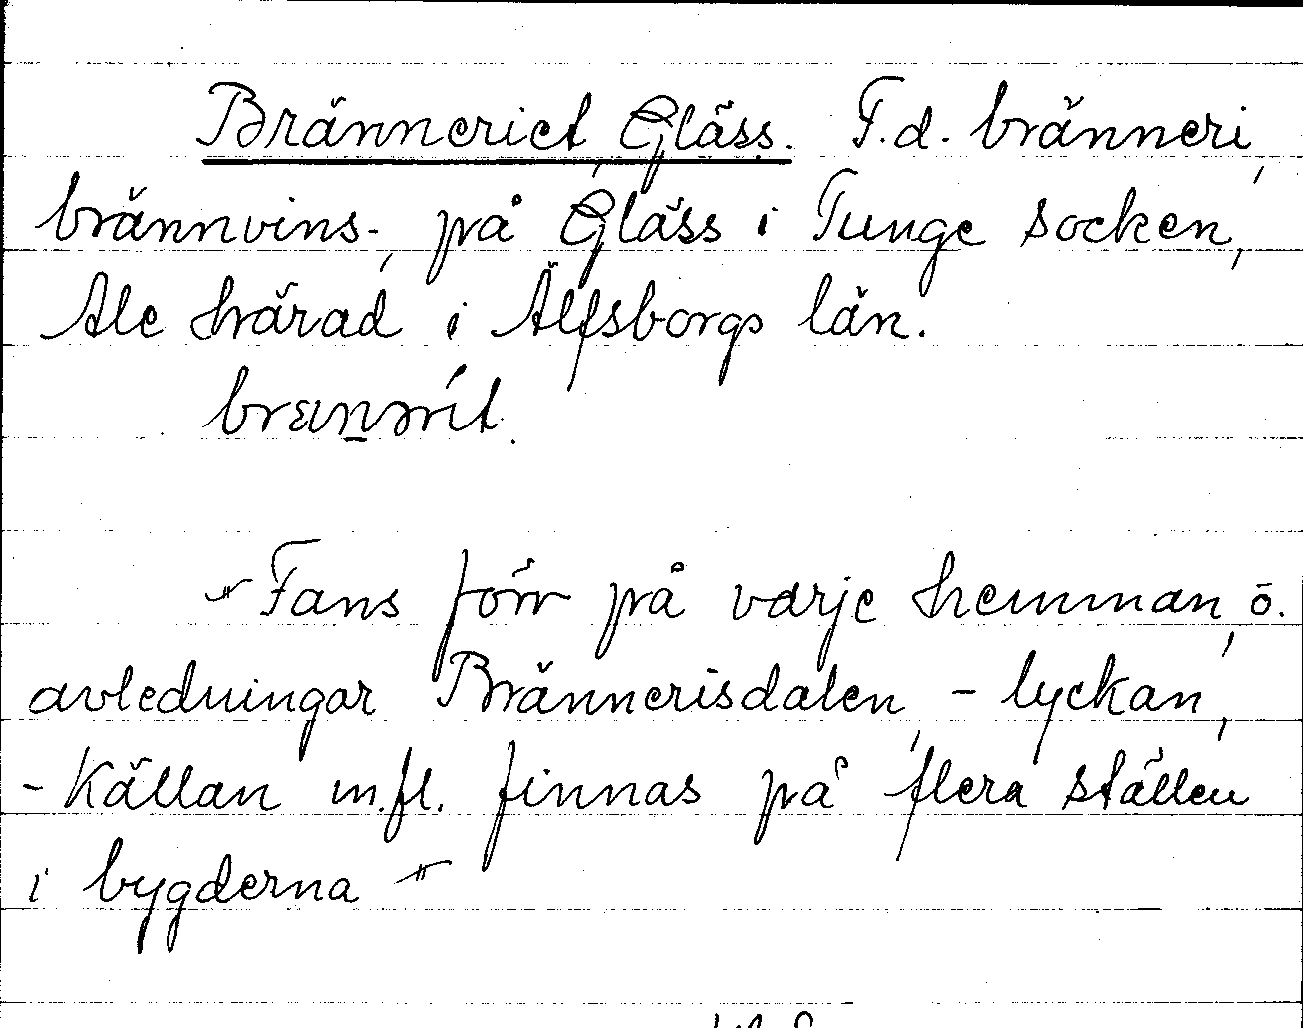 Bränneriet, Gläss. F.d. bränneri,
brännvins-, på Gläss i Tunge socken,
Ale härad i Älfsborgs län.
Fans förr på varje hemman, ö.
avledningar Brännerisdalen, -lyckan,
-Källan m.fl. finnas på flera ställen
i bygderna